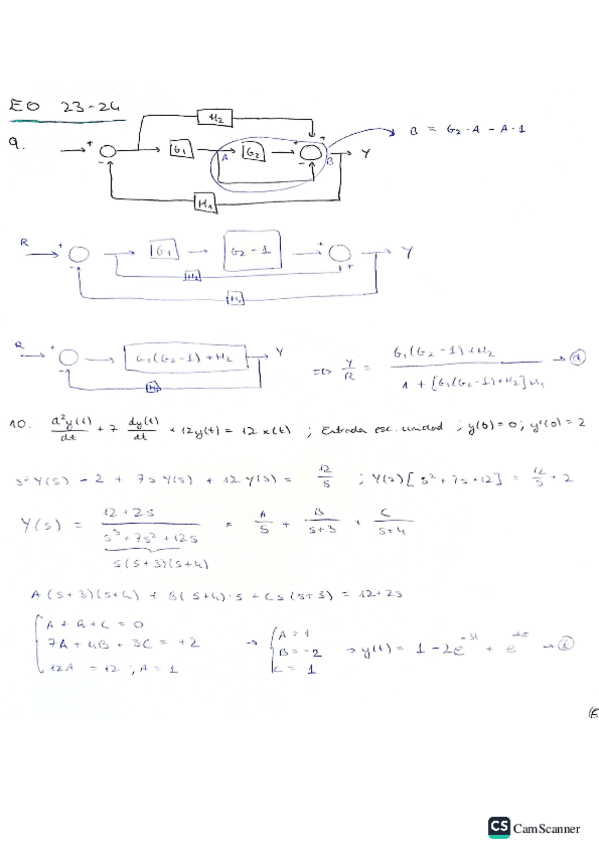 EO 23-24
9.
H2
+
+
G1
A
G2
+
B
Y
B = G2·A - A·1
-
-
H1
R
+
G1
G2 - 1
+
Y
-
H2
+
H1
R
+
G1(G2-1)+H2
Y
-
H1
⇒ Y/R = G1(G2-1)+H2 / 1 + [G1(G2-1)+H2]H1 → a
10. d²y(t)/dt + 7 dy(t)/dt + 12y(t) = 12x(t) ; Entrada esc. unidad ; y(0)=0; y'(0)=2
s²Y(s) - 2 + 7sY(s) + 12Y(s) = 12/s ; Y(s)[s²+7s+12] = 12/s + 2
Y(s) = 12+2s / s³+7s²+12s = A/s + B/s+3 + C/s+4
s(s+3)(s+4)
A(s+3)(s+4) + B(s+4)·s + Cs(s+3) = 12+2s
A+B+C = 0
7A+4B+3C = +2 → A=1 B=-2 C=1 → y(t) = 1 - 2e^-3t + e
12A = 12 ; A=1
CS CamScanner